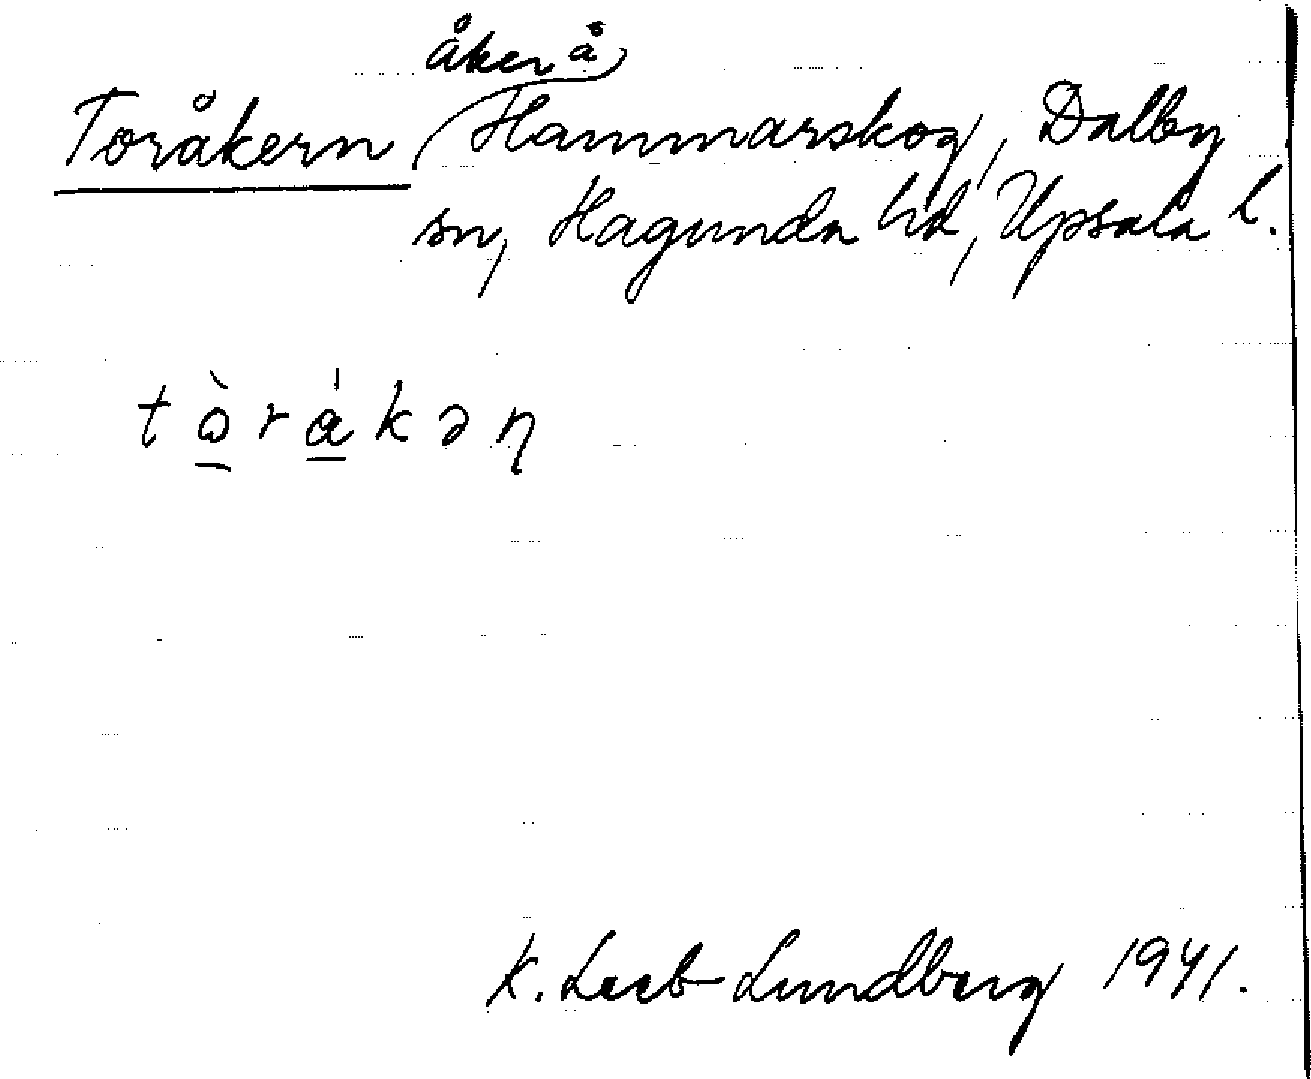 åker å
Toråkern Hammarskog, Dalby
sn, Hagunda hd, Upsala l.
tò̱rá̱kən
K. Leeb-Lundberg 1941.